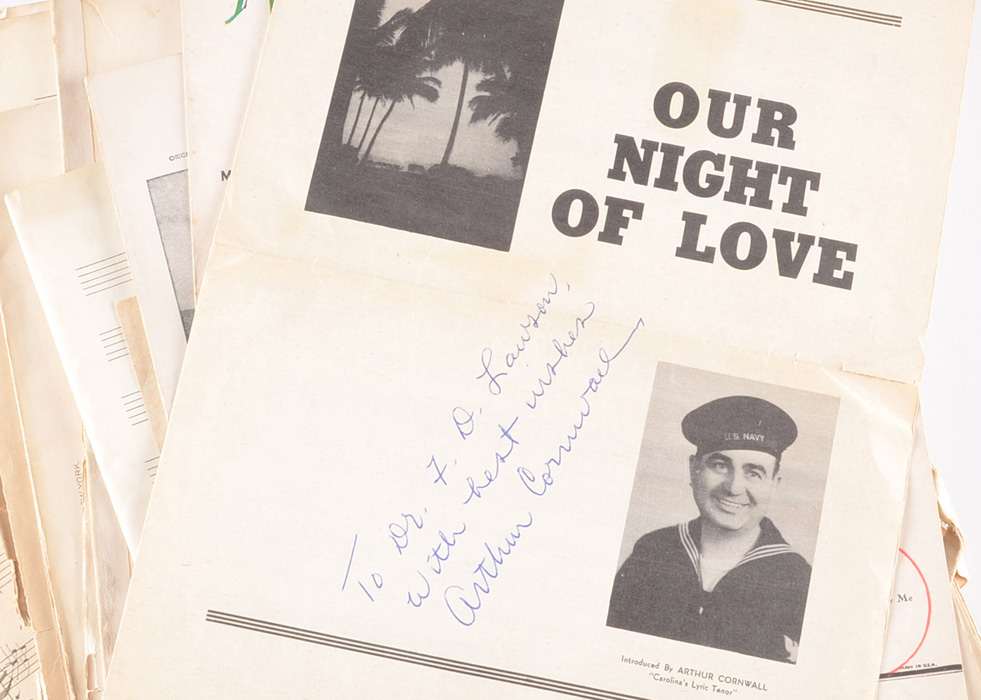 OUR
NIGHT
OF LOVE
To Dr. F. D. Lawson.
With best wishes
Arthur Cornwall
U.S. NAVY
Introduced By ARTHUR CORNWALL
"Carolina's Lyric Tenor"
Me
MADE IN U.S.A.